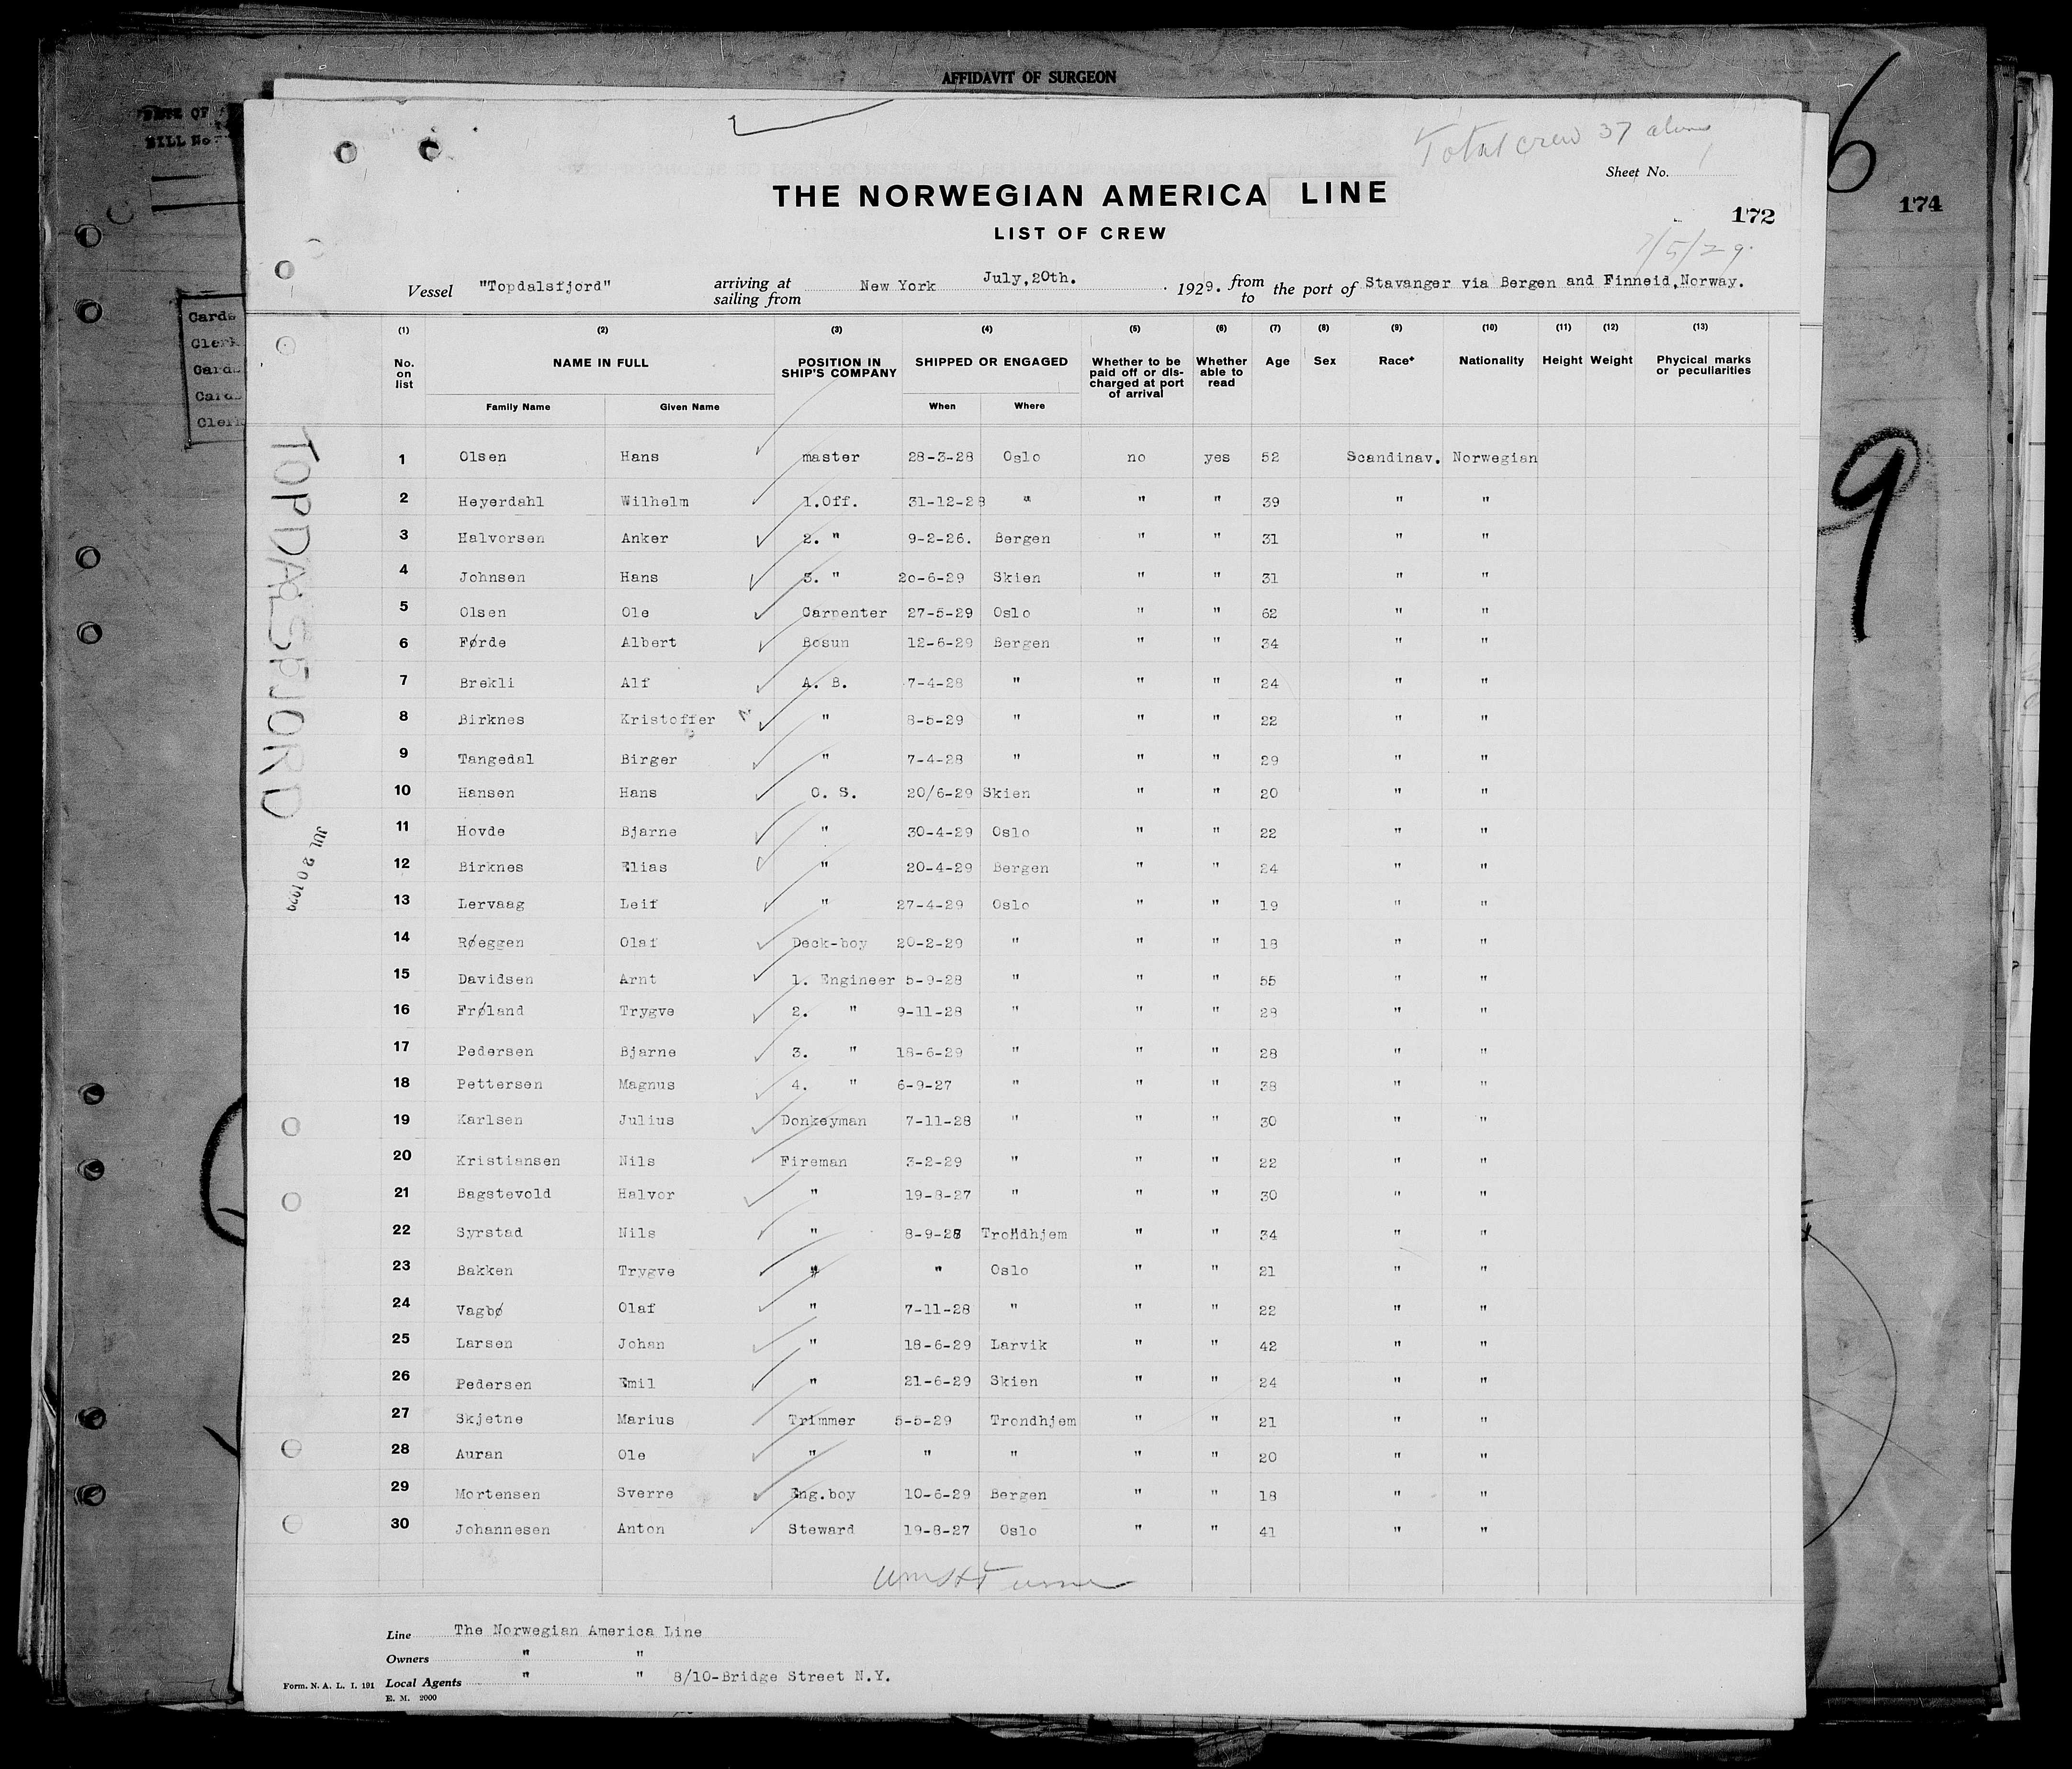 AFFIDAVIT OF SURGEON
Total crew 37
Sheet No. 1
THE NORWEGIAN AMERICA LINE
172
174
LIST OF CREW
7/5/29.
Vessel "Topdalsfjord" arriving at sailing from New York July,20th. 1929. from to the port of Stavanger via Bergen and Finneid,Norway.
(1) (2) (3) (4) (5) (6) (7) (8) (9) (10) (11) (12) (13)
No. on list NAME IN FULL POSITION IN SHIP'S COMPANY SHIPPED OR ENGAGED Whether to be paid off or dis-charged at port of arrival Whether able to read Age Sex Race* Nationality Height Weight Phycical marks or peculiarities
Family Name Given Name When Where
1 Olsen Hans master 28-3-28 Oslo no yes 52 Scandinav. Norwegian
2 Heyerdahl Wilhelm 1.Off. 31-12-28 " " " 39 " "
3 Halvorsen Anker 2. " 9-2-26. Bergen " " 31 " "
4 Johnsen Hans 3. " 20-6-29 Skien " " 31 " "
5 Olsen Ole Carpenter 27-5-29 Oslo " " 62 " "
6 Førde Albert Bosun 12-6-29 Bergen " " 34 " "
7 Brekli Alf A. B. 7-4-28 " " " 24 " "
8 Birknes Kristoffer " 8-5-29 " " " 22 " "
9 Tangedal Birger " 7-4-28 " " " 29 " "
10 Hansen Hans O. S. 20/6-29 Skien " " 20 " "
11 Hovde Bjarne " 30-4-29 Oslo " " 22 " "
12 Birknes Elias " 20-4-29 Bergen " " 24 " "
13 Lervaag Leif " 27-4-29 Oslo " " 19 " "
14 Røeggen Olaf Deck-boy 20-2-29 " " " 18 " "
15 Davidsen Arnt 1. Engineer 5-9-28 " " " 55 " "
16 Frøland Trygve 2. " 9-11-28 " " " 28 " "
17 Pedersen Bjarne 3. " 18-6-29 " " " 28 " "
18 Pettersen Magnus 4. " 6-9-27 " " " 38 " "
19 Karlsen Julius Donkeyman 7-11-28 " " " 30 " "
20 Kristiansen Nils Fireman 3-2-29 " " " 22 " "
21 Bagstevold Halvor " 19-8-27 " " " 30 " "
22 Syrstad Nils " 8-9-28 Trondhjem " " 34 " "
23 Bakken Trygve " " Oslo " " 21 " "
24 Vagbø Olaf " 7-11-28 " " " 22 " "
25 Larsen Johan " 18-6-29 Larvik " " 42 " "
26 Pedersen Emil " 21-6-29 Skien " " 24 " "
27 Skjetne Marius Trimmer 5-5-29 Trondhjem " " 21 " "
28 Auran Ole " " " " " 20 " "
29 Mortensen Sverre Eng.boy 10-6-29 Bergen " " 18 " "
30 Johannesen Anton Steward 19-8-27 Oslo " " 41 " "
Line The Norwegian America Line
Owners " "
Local Agents " " 8/10-Bridge Street N.Y.
Form. N. A. L. I. 191
E. M. 2000
TOPDALSFJORD
JUL 20 1929
BILL No
Cards
Clerk
Cards
Cards
Clerk
6
9